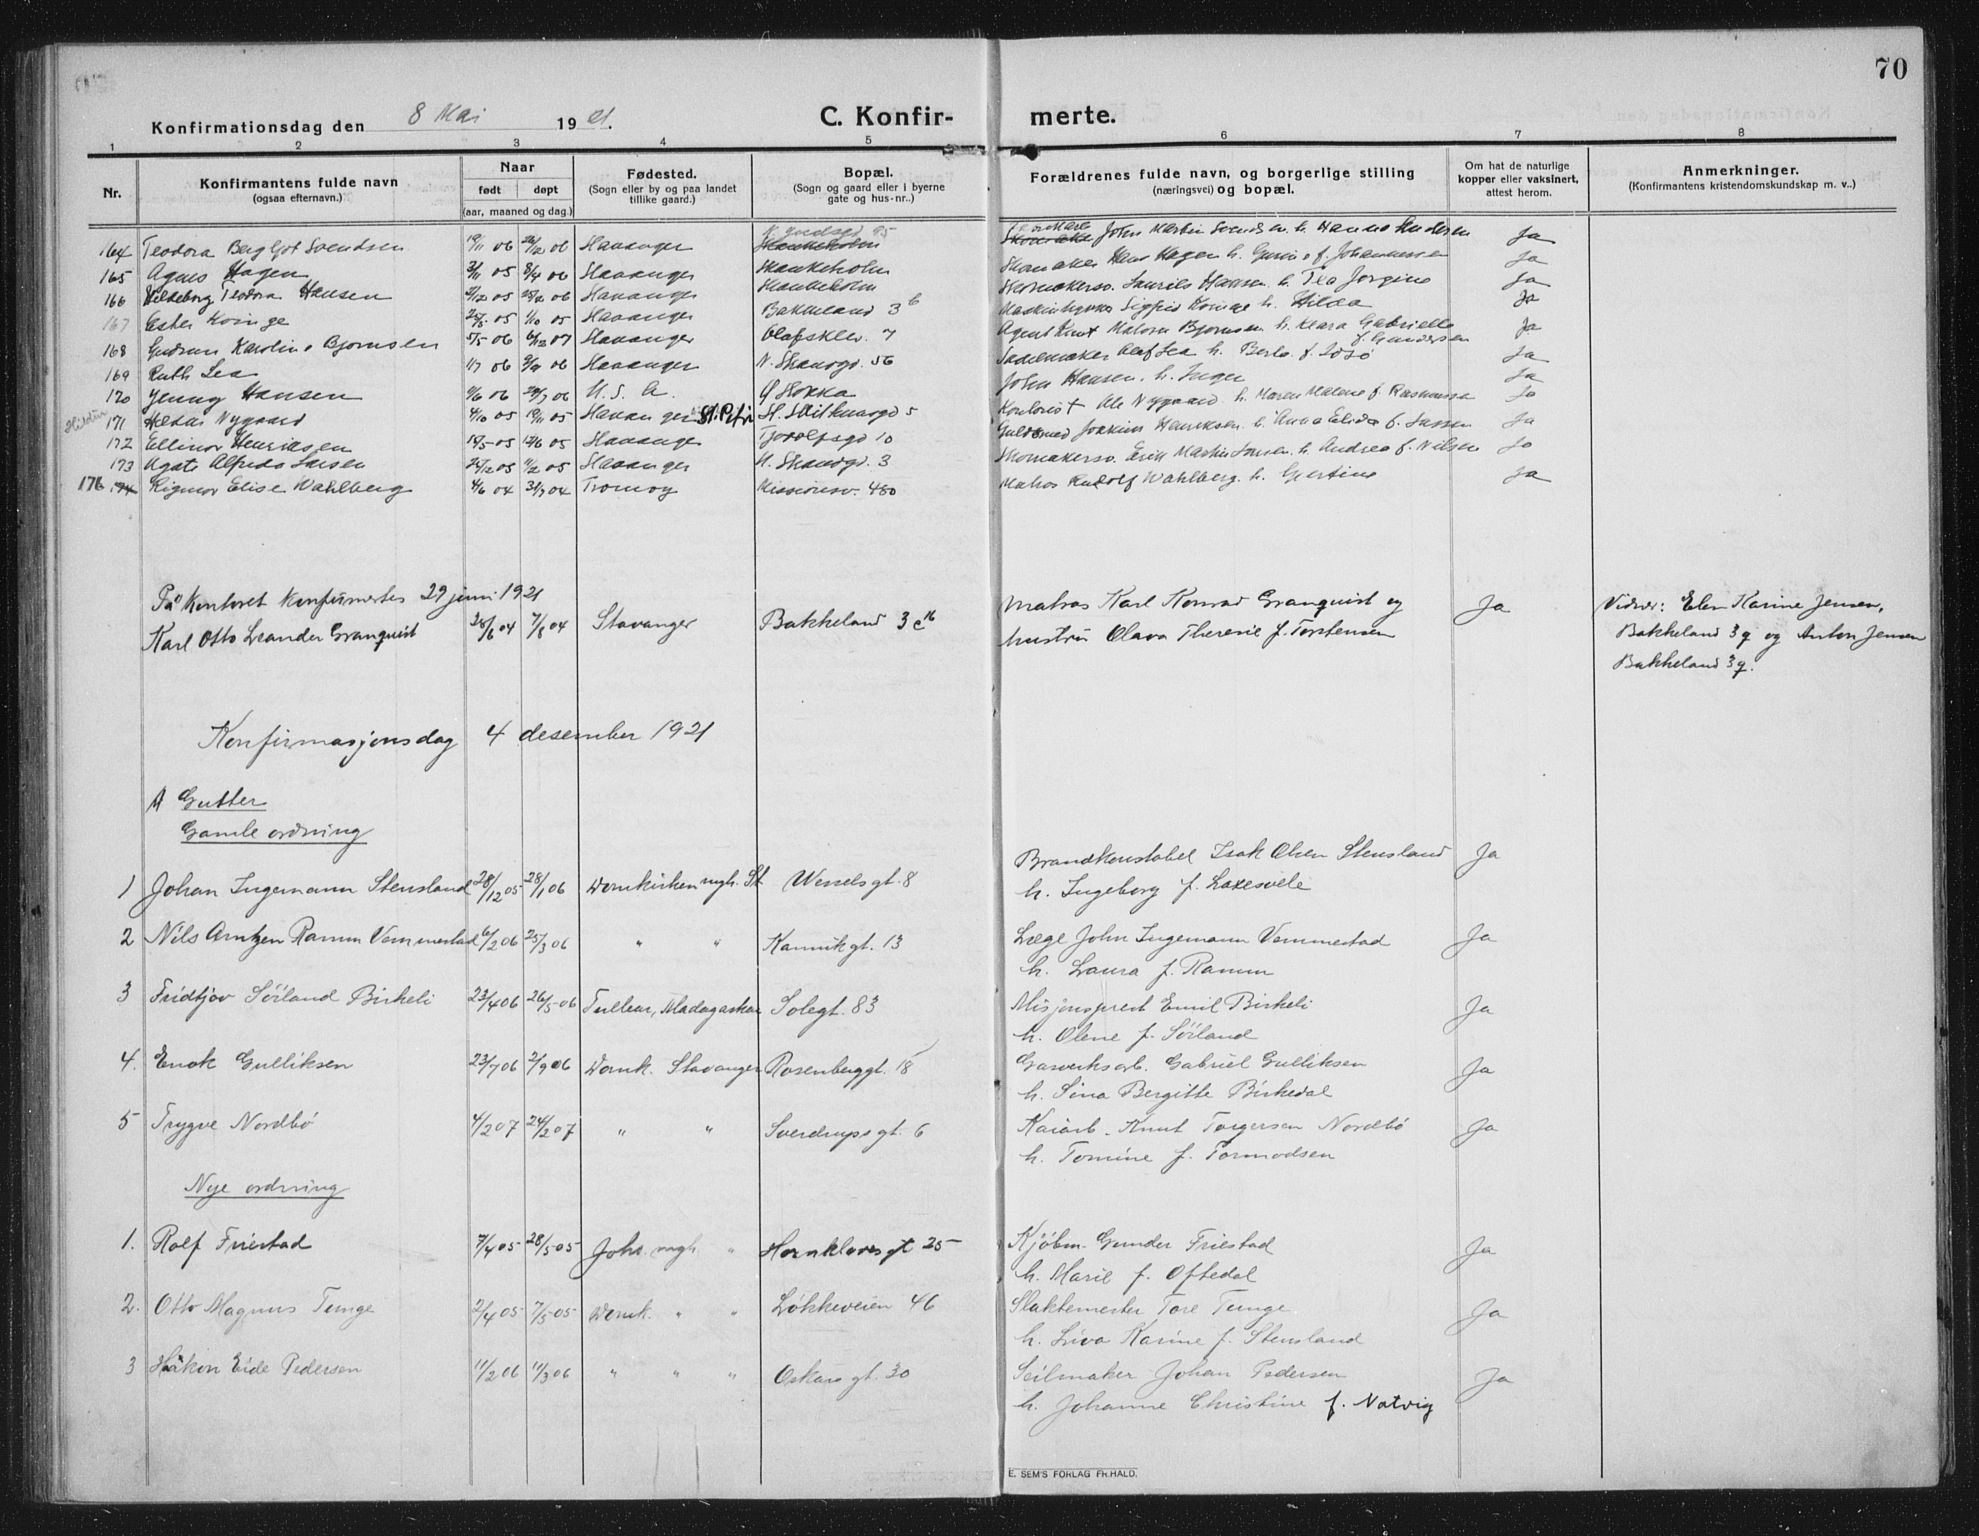 70
Konfirmationsdag den 8 Mai 1921.
C. Konfirmerte.
1 2 3 4 5 6 7 8
Nr.
Konfirmantens fulde navn
(ogsaa efternavn.)
Naar
født døpt
(aar, maaned og dag.)
Fødested.
(Sogn eller by og paa landet
tillike gaard.)
Bopæl.
(Sogn og gaard eller i byerne
gate og hus-nr..)
Forældrenes fulde navn, og borgerlige stilling
(næringsvei) og bopæl.
Om hat de naturlige
kopper eller vaksinert,
attest herom.
Anmerkninger.
(Konfirmantens kristendomskundskap m. v..)
164 Teodora Bergljot Svendsen 19/11 06 26/12 06 Stavanger John Martin Svendsen h. Hanna Ja
165 Agnes Hagen 3/11 05 8/4 06 Stavanger Skankeholm Skomaker Hans Hagen h. f. Johannessen Ja
166 Hildeborg Teodora Hansen 05 06 Stavanger Skankeholm Skomakersv. Laurits Hansen h. Tea Jorgine Ja
167 Ester Kvinge 05 1/10 05 Stavanger Bakkeland 3 b Sigfrid Kvinge h. Hilda Ja
168 Gudrun Karoline Bjørnsen 5/5 06 6/12 07 Stavanger Olafsklev. 7 Agent Knut Bjørnsen h. Klara Gabrielle f. Gundersen Ja
169 Ruth Lea 1/7 06 06 Stavanger N. Skavgd. 56 Sadelmaker Olaf Lea h. Berta f. Ja
170 Jenny Hansen 9/6 06 06 U. S. A. Hansen. h. Inger Ja
Hildur
171 Nygaard 4/10 05 19/11 05 Stavanger St. Petri 5 Kontorist Ole Nygaard h. Maren Malene f. Rasmussen Ja
172 Ellinor Henriksen 05 05 Stavanger Tjodolfsgd 10 Guldsmed Joakim Henriksen h. Anna Elida f. Ja
173 Agate Alfreda Larsen 05 05 Stavanger 3 Skomakersv. Erik Martin Larsen h. Andrea f. Nilsen Ja
176 174 Rigmor Elise Wahlberg 4/6 04 31/7 04 Tromøy Misjonsv. 480 Matros Rudolf Wahlberg h. Gjertine Ja
På kontoret konfirmertes 29 juni 1921
Karl Otto Leander Granquist 28/6 04 7/8 04 Stavanger Bakkeland 3 c Matros Karl Konrad Granquist og Ja Vidner: Elen Karine Jensen,
hustru Olava Theresie f. Torstensen Bakkeland 3 q og Anton Jensen
Bakkeland 3 q.
Konfirmasjonsdag 4 desember 1921
A Gutter
Gamle ordning
1 Johan Ingemann Stensland 28/12 05 28/1 06 Domkirken mgh. St Wessels gt. 8 Brandkonstabel Isak Olsen Stensland Ja
h. Ingeborg f. Laxesvele
2 Nils Arntzen Ramm Vemmestad 6/2 06 25/3 06 " " Kannik gt. 13 Læge John Ingemann Vemmestad Ja
h. Laura f. Ramm
3 Fridtjov Söiland Birkeli 23/4 06 26/5 06 Tullear, Madagaskar Solegt. 83 Misjonsprest Emil Birkeli Ja
h. Olene f. Söiland
4. Enok Gulliksen 23/7 06 2/9 06 Domk. Stavanger Rosenberggt. 18 Gasverksarb. Gabriel Gulliksen Ja
h. Sina Bergitte Birkedal
5 Trygve Nordbö 4/2 07 24/2 07 " " Sverdrups gt. 6 Kaiarb. Knut Torgersen Nordbö Ja
h. Tomine f. Tormodsen
Nye ordning
1. Rolf Friestad 7/4 05 28/5 05 Joh. mgh. " Hornkloves gt 25 Kjöbm. Gunder Friestad Ja
h. Marie f. Oftedal
2. Otto Magnus Tunge 2/4 05 7/5 05 Domk. " " Løkkeveien 46 Slaktemester Tore Tunge Ja
h. Liva Karine f. Stensland
3 Håkon Eide Pedersen 11/2 06 11/3 06 " " " Oskars gt. 30 Seilmaker Johan Pedersen Ja
h. Johanne Christine f. Natvig
E. SEM'S FORLAG FR.HALD.